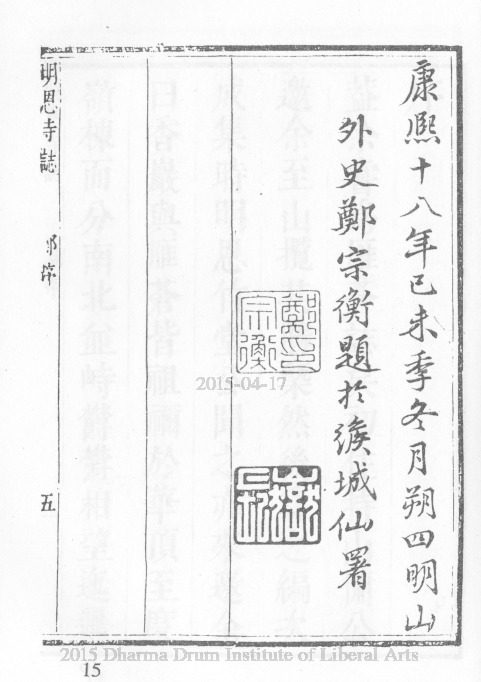 康熙十八年己未季冬月朔四明山
外史鄭宗衡題於緱城仙署
鄭印
宗衡
2015-04-17
明恩寺誌
五
2015 Dharma Drum Institute of Liberal Arts
15